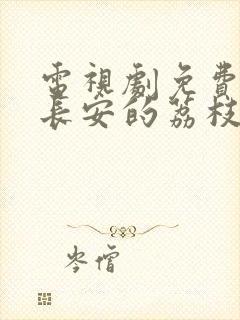 電視劇免費
長安的荔枝
岑僧